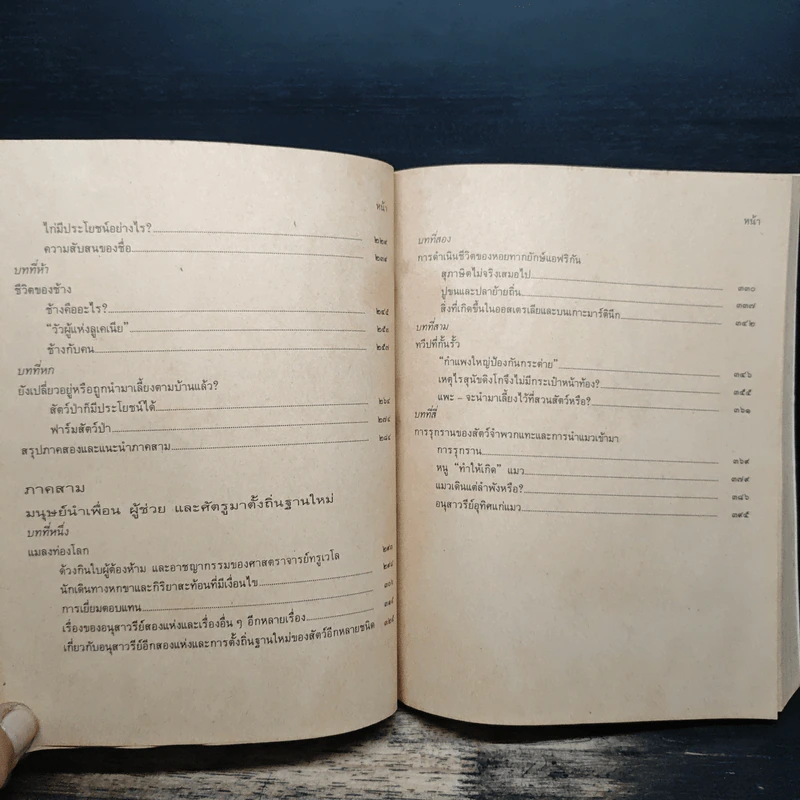 หน้า
ไก่มีประโยชน์อย่างไร? ๒๒๙
ความสับสนของชื่อ ๒๓๙
บทที่ห้า
ชีวิตของช้าง
ช้างคืออะไร? ๒๔๕
“วัวผู้แห่งลูเคเนีย” ๒๕๑
ช้างกับคน ๒๕๓
บทที่หก
ยังเปลี่ยวอยู่หรือถูกนำมาเลี้ยงตามบ้านแล้ว?
สัตว์ป่าก็มีประโยชน์ได้ ๒๖๔
ฟาร์มสัตว์ป่า ๒๗๔
สรุปภาคสองและแนะนำภาคสาม ๒๘๔
ภาคสาม
มนุษย์นำเพื่อน ผู้ช่วย และศัตรูมาตั้งถิ่นฐานใหม่
บทที่หนึ่ง
แมลงท่องโลก
ด้วงกินใบผู้ต้องห้าม และอาชญากรรมของศาสตราจารย์ทรูเวโล ๒๙๑
นักเดินทางหกขาและกิริยาสะท้อนที่มีเงื่อนไข ๒๙๘
การเยี่ยมตอบแทน ๓๐๖
เรื่องของอนุสาวรีย์สองแห่งและเรื่องอื่น ๆ อีกหลายเรื่อง ๓๑๘
เกี่ยวกับอนุสาวรีย์อีกสองแห่งและการตั้งถิ่นฐานใหม่ของสัตว์อีกหลายชนิด ๓๒๕
หน้า
บทที่สอง
การดำเนินชีวิตของหอยทากยักษ์แอฟริกัน
สุภาษิตไม่จริงเสมอไป ๓๓๐
ปูขนและปลาย้ายถิ่น ๓๓๗
สิ่งที่เกิดขึ้นในออสเตรเลียและบนเกาะมาร์ตินีก ๓๔๒
บทที่สาม
ทวีปที่กั้นรั้ว
“กำแพงใหญ่ป้องกันกระต่าย” ๓๔๖
เหตุไรสุนัขดิงโกจึงไม่มีกระเป๋าหน้าท้อง? ๓๕๕
แพะ – จะนำมาเลี้ยงไว้ที่สวนสัตว์หรือ? ๓๖๑
บทที่สี่
การรุกรานของสัตว์จำพวกแทะและการนำแมวเข้ามา
การรุกราน ๓๖๙
หนู “ทำให้เกิด” แมว ๓๗๙
แมวเดินแต่ลำพังหรือ? ๓๘๖
อนุสาวรีย์อุทิศแก่แมว ๓๙๕